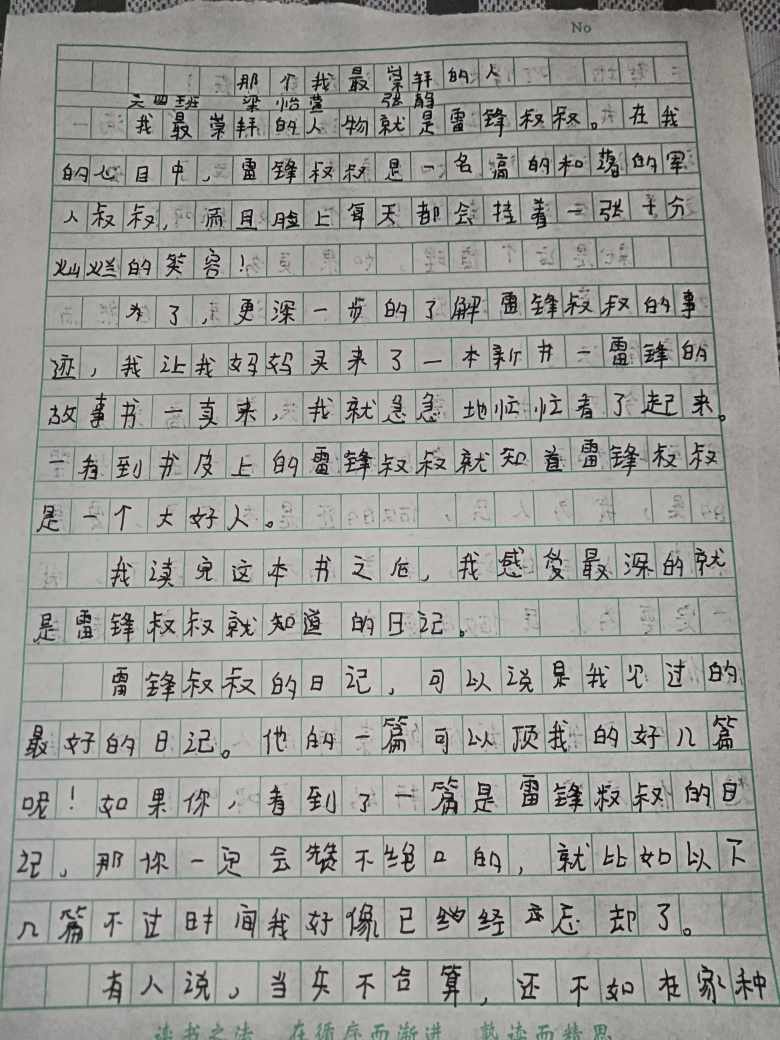 No
那个我最崇拜的人
六四班 梁怡萱
我最崇拜的人物就是雷锋叔叔。在我
的心目中,雷锋叔叔是一名高的和蔼的军
人叔叔,而且脸上每天都会挂着一张十分
灿烂的笑容!
为了,更深一步的了解雷锋叔叔的事
迹,我让我妈妈买来了一本新书一雷锋的
故事书一真来,我就急急地忙忙看了起来。
一看到书皮上的雷锋叔叔就知道雷锋叔叔
是一个大好人。
我读完这本书之后,我感受最深的就
是雷锋叔叔就知道的日记。
雷锋叔叔的日记,可以说是我见过的
最好的日记。他的一篇可以顶我的好几篇
呢!如果你,看到了一篇是雷锋叔叔的日
记,那你一定会赞不绝口的,就比如以下
几篇不过时间我好像已经忘却了。
有人说,当失不合算,还不如在家种
读书之法 在循序而渐进 熟读而精思